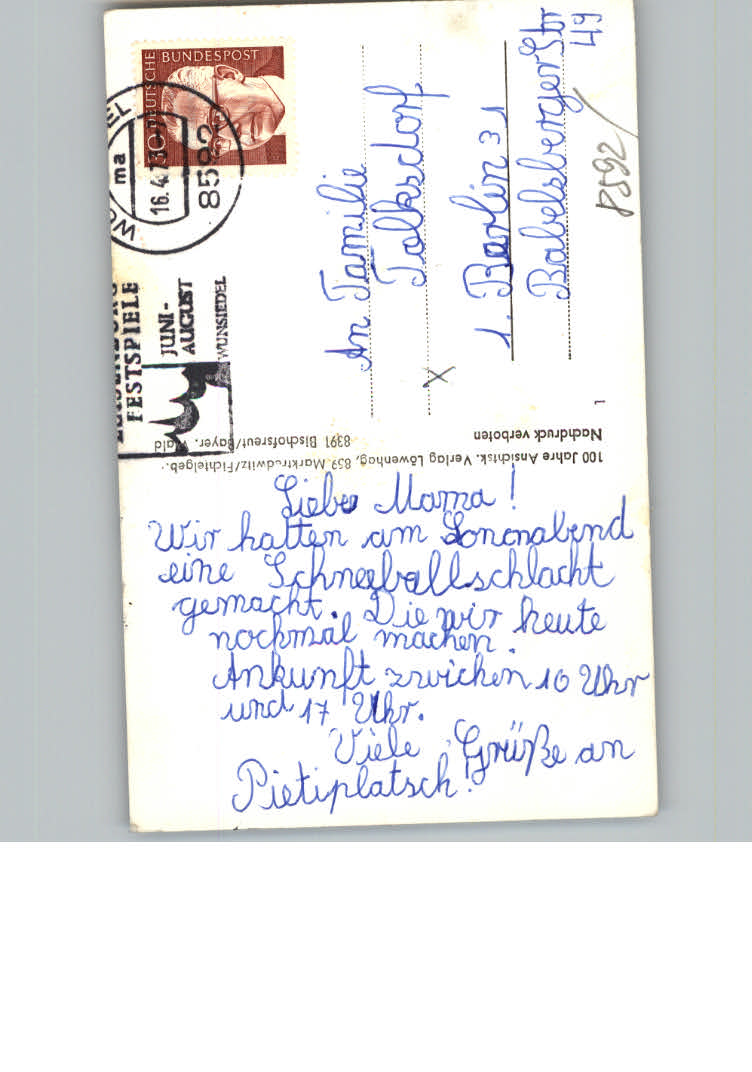 Liebe Mama!
Wir hatten am Sonnabend
eine Schneeballschlacht
gemacht. Die wir heute
nochmal machen.
Ankunft zwichen 10 Uhr
und 17 Uhr.
Viele Grüße an
Pietiplatsch!
DEUTSCHE BUNDESPOST
30
ma
16.4.73
8592
FESTSPIELE
JUNI-
AUGUST
WUNSIEDEL
An Familie
Tolksdorf
1. Berlin 31
Babelsberger Str
49
8592
100 Jahre Ansichtsk. Verlag Löwenhag, 859 Marktredwitz/Fichtelgeb.
8391 Bischofsreut/Bayer. Wald
Nachdruck verboten
1